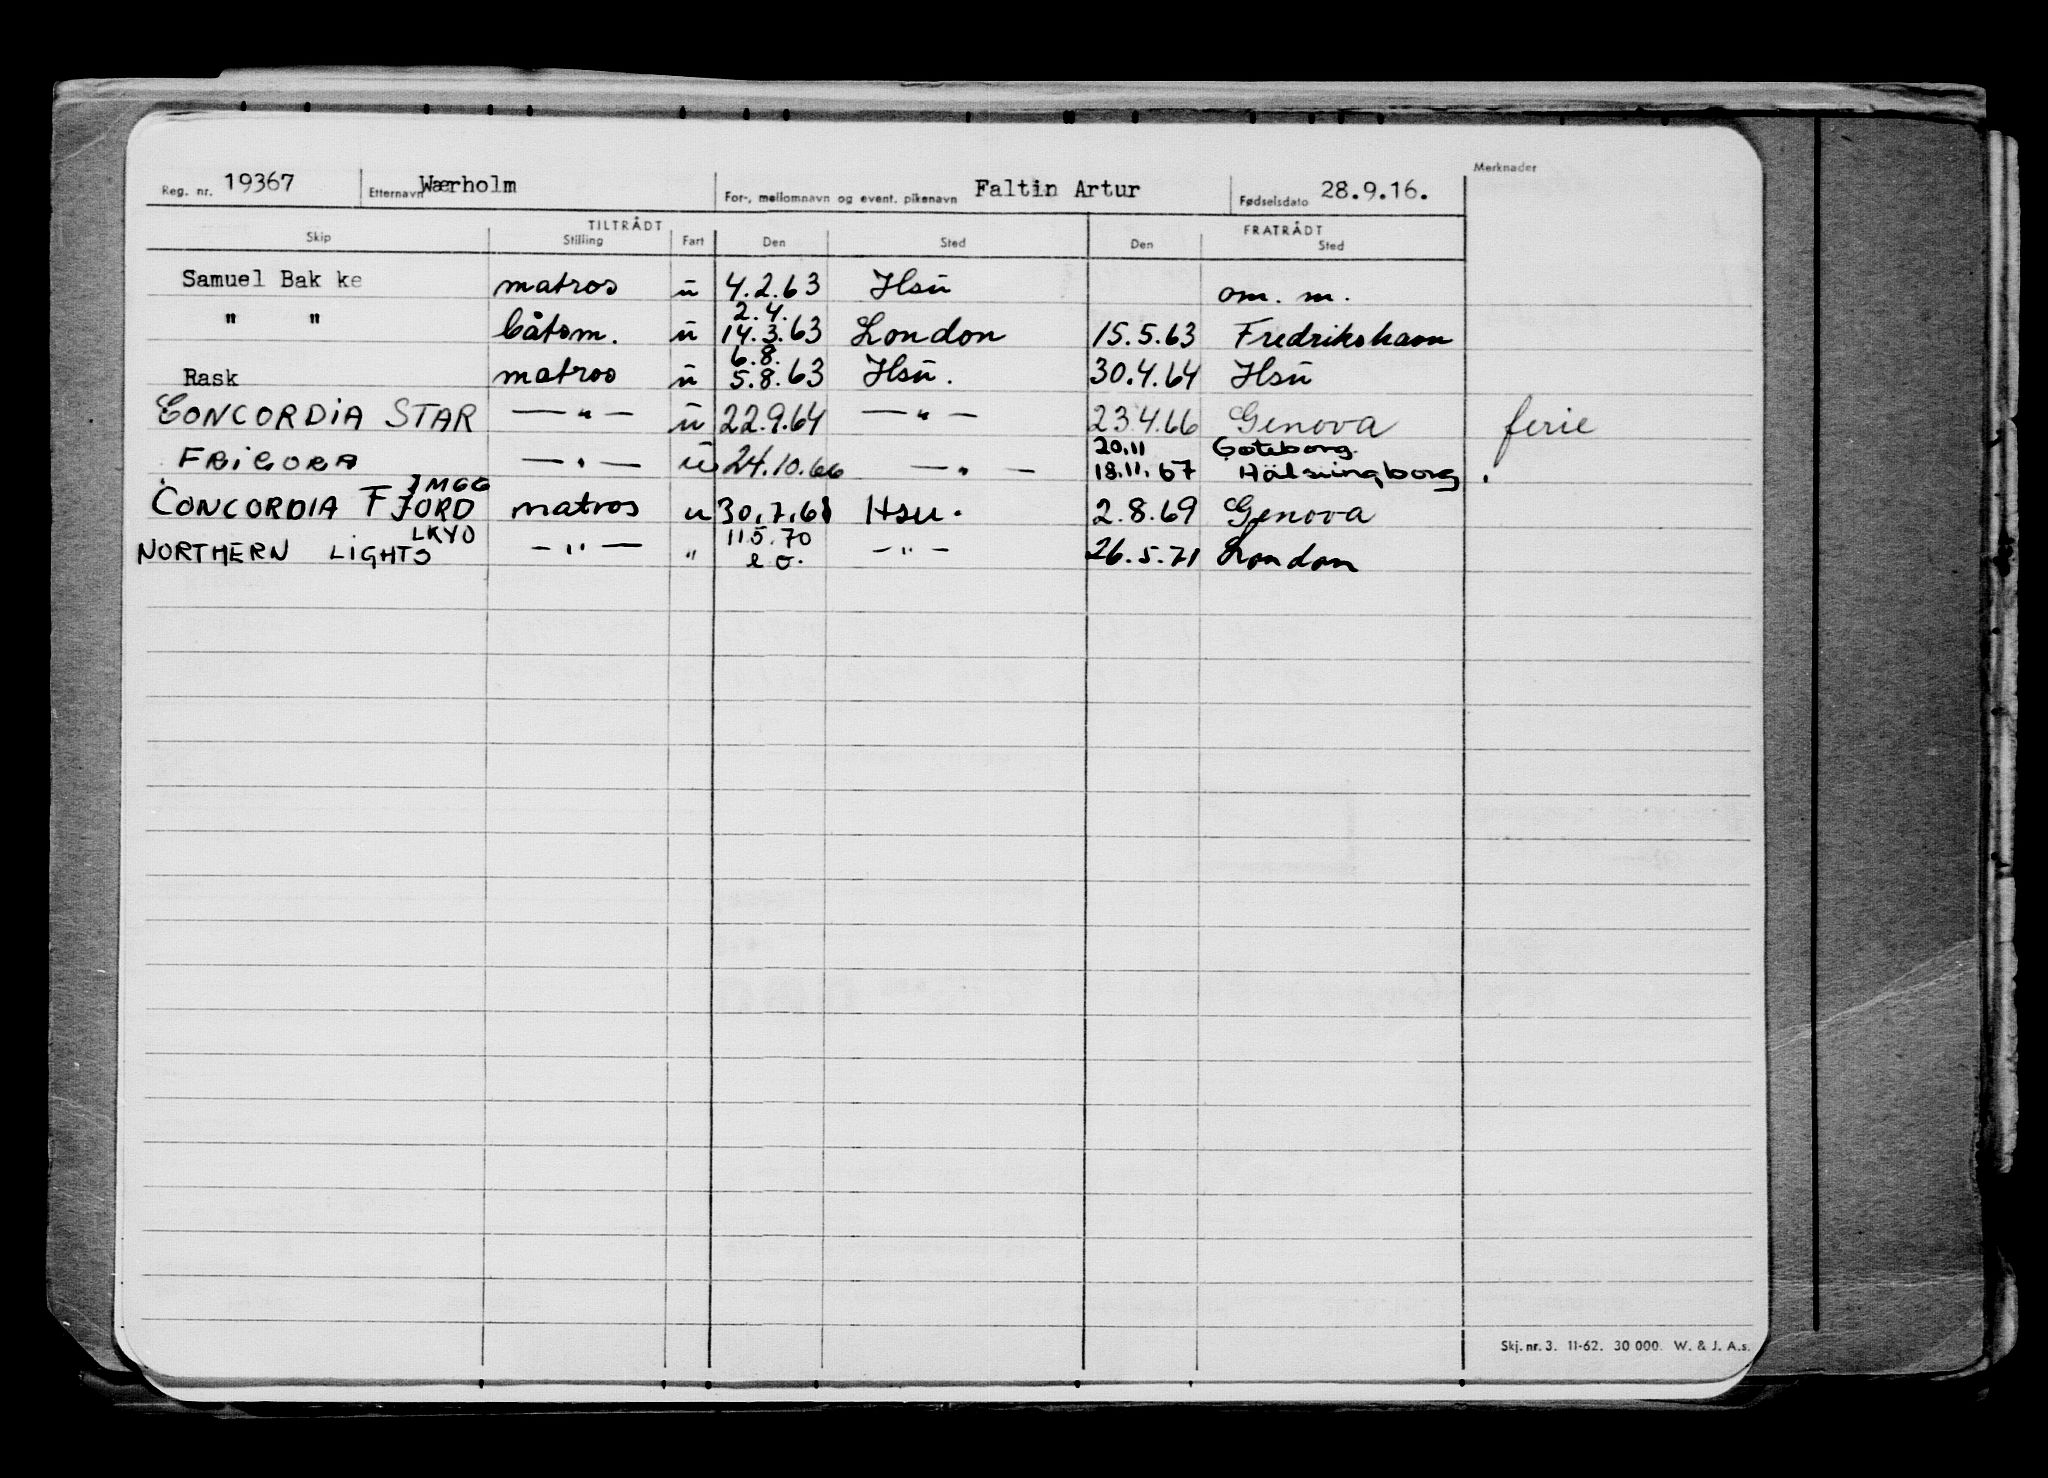 Reg. nr. 19367 Etternavn Wærholm For-, mellomnavn og event. pikenavn Faltin Artur Fødselsdato 28.9.16. Merknader
TILTRÅDT FRATRÅDT
Skip Stilling Fart Den Sted Den Sted
Samuel Bak ke matros u 4.2.63 Hsu om. m.
2.4.
" " båtsm. u 14.3.63 London 15.5.63 Fredrikshavn
6.8.
Rask matros u 5.8.63 Hsu. 30.4.64 Hsu
CONCORDIA STAR — " — u 22.9.64 — " — 23.4.66 Genova ferie
20.11 Göteborg.
FRIGORA — " — u 24.10.66 — " — 18.11.67 Hälsingborg
JMGG
CONCORDIA FJORD matros u 30.7.68 Hsu. 2.8.69 Genova
LKYO 11.5.70
NORTHERN LIGHTS — " — " e o. — " — 26.5.71 London
Skj. nr. 3. 11-62. 30 000. W. & J. A.s.